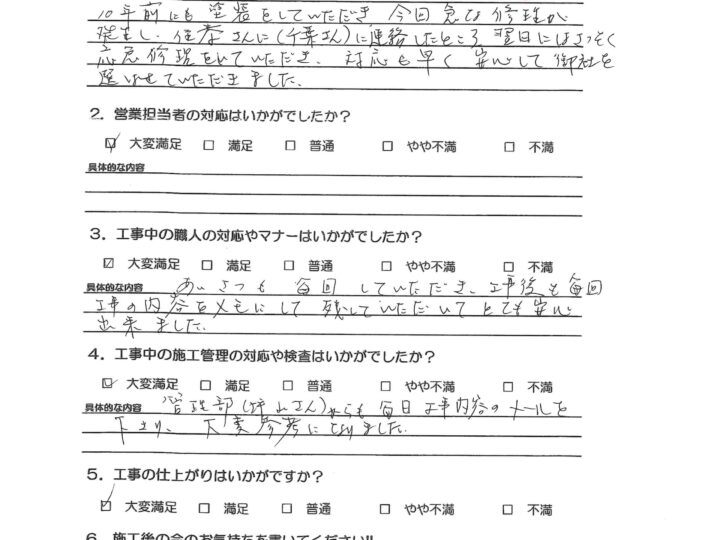 10年前にも塗装をしていただき今回急な修理が
発生し、住春さんに(千葉さん)に連絡したところ翌日にはさっそく
応急修理をしていただき、対応も早く安心して御社を
選ばせていただきました。
2．営業担当者の対応はいかがでしたか？
☑ 大変満足 □ 満足 □ 普通 □ やや不満 □ 不満
具体的な内容
3．工事中の職人の対応やマナーはいかがでしたか？
☑ 大変満足 □ 満足 □ 普通 □ やや不満 □ 不満
具体的な内容 あいさつも毎回していただき、工事後も毎回
工事の内容をメモにして残していただいてとても安心
出来ました。
4．工事中の施工管理の対応や検査はいかがでしたか？
☑ 大変満足 □ 満足 □ 普通 □ やや不満 □ 不満
具体的な内容 管理部(坪山さん)からも毎日工事内容のメールを
下さり、大変参考になりました。
5．工事の仕上がりはいかがですか？
☑ 大変満足 □ 満足 □ 普通 □ やや不満 □ 不満
6．施工後の今のお気持ちを書いてください!!